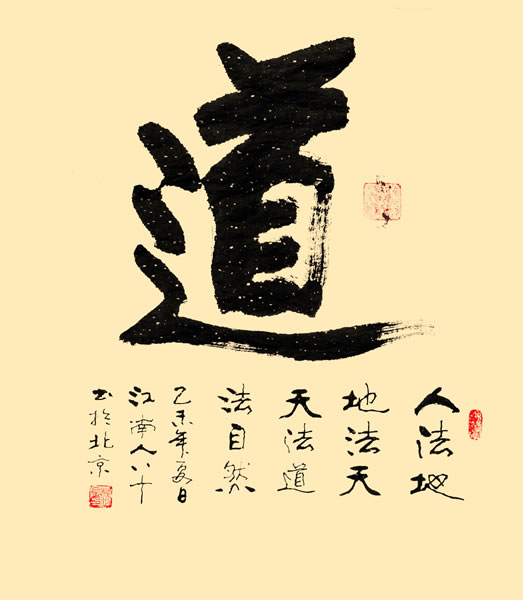 道
人法地
地法天
天法道
法自然
乙未年夏日
江南人八十
书於北京